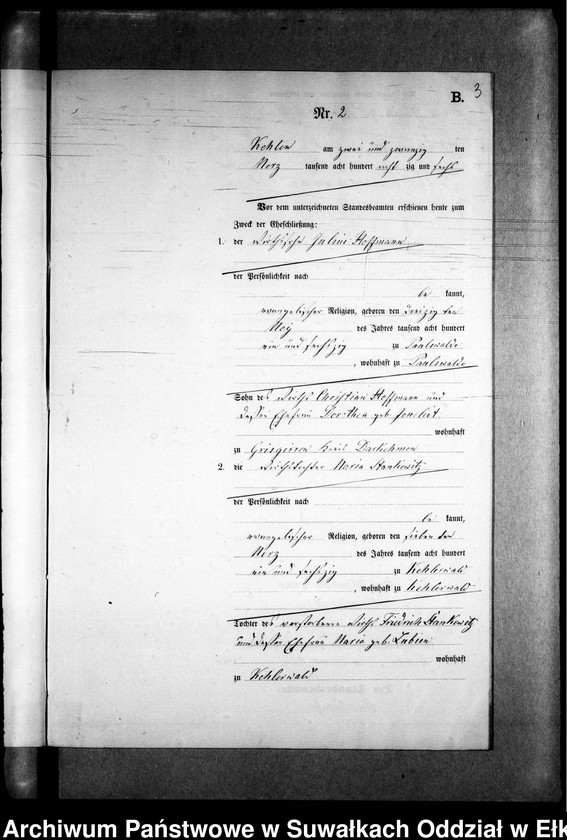 B. 3
Nr. 2
Kehlen am zwei und zwanzig ten
März tausend acht hundert acht zig und sechs
Vor dem unterzeichneten Standesbeamten erschienen heute zum
Zweck der Eheschließung:
1. der Wirthssohn Hoffmann
der Persönlichkeit nach
be kannt,
evangelischer Religion, geboren den dreizig ten
des Jahres tausend acht hundert
ein und sechszig zu Paulswalde
, wohnhaft zu Paulswalde
Sohn des Wirths Christian Hoffmann und
dessen Ehefrau Dorothea geb.
wohnhaft
zu Kreis Darkehmen
2. die Wirthstochter Maria Stankewitz
der Persönlichkeit nach
be kannt,
evangelischer Religion, geboren den sieben ten
März des Jahres tausend acht hundert
ein und sechszig zu Kehlerwald
, wohnhaft zu Kehlerwald
Tochter des verstorbenen Wirths Friedrich Stankewitz
und dessen Ehefrau Maria geb.
wohnhaft
zu Kehlerwald
Archiwum Państwowe w Suwałkach Oddział w Ełk